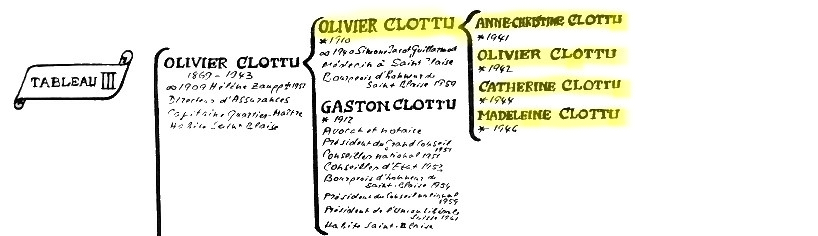 TABLEAU III
OLIVIER CLOTTU
1869 - 1943
∞ 1909 Hélène Zaupp † 1957
Directeur d'Assurances
Capitaine Quartier-Maître
Habite Saint-Blaise
OLIVIER CLOTTU
* 1910
∞ 1940 Simone Jacot Guillarmod
Médecin à Saint-Blaise
Bourgeois d'honneur de
Saint-Blaise 1959
GASTON CLOTTU
* 1912
Avocat et notaire
Président du Grand Conseil
1951
Conseiller national 1951
Conseiller d'Etat 1953
Bourgeois d'honneur de
Saint-Blaise 1954
Président du Conseil national
1959
Président de l'Union libérale
Suisse 1961
Habite Saint-Blaise
ANNE-CHRISTINE CLOTTU
* 1941
OLIVIER CLOTTU
* 1942
CATHERINE CLOTTU
* 1944
MADELEINE CLOTTU
* 1946